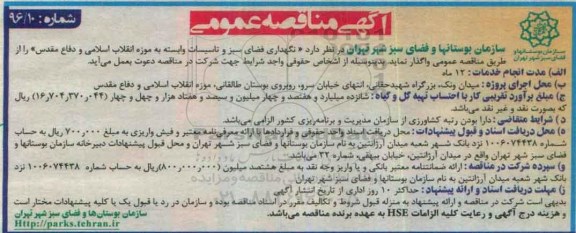 آگهی مناقصه عمومی
شماره : ۹۶/۱۰
سازمان بوستانها و فضای سبز شهر تهران
سازمان بوستانها و فضای سبز شهر تهران در نظر دارد « نگهداری فضای سبز و تاسیسات وابسته به موزه انقلاب اسلامی و دفاع مقدس» را از
طریق مناقصه عمومی واگذار نماید. بدینوسیله از اشخاص حقوقی واجد شرایط جهت شرکت در مناقصه دعوت بعمل می‌آید.
الف) مدت انجام خدمات : ۱۲ ماه
ب) محل اجرای پروژه : میدان ونک، بزرگراه شهیدحقانی، انتهای خیابان سرو، روبروی بوستان طالقانی، موزه انقلاب اسلامی و دفاع مقدس
ج) مبلغ برآورد تقریبی کار با احتساب تهیه گل و گیاه : شانزده میلیارد و هفتصد و چهار میلیون و سیصد و هفتاد هزار و چهل و چهار (۱۶,۷۰۴,۳۷۰,۰۴۴) ریال
که بصورت نقد و غیر نقد می‌باشد.
د) شرایط متقاضی : دارا بودن رتبه کشاورزی از سازمان مدیریت و برنامه‌ریزی کشور الزامی می‌باشد.
ه) محل دریافت اسناد و قبول پیشنهادات : محل دریافت اسناد واحد حقوقی و قراردادها با ارائه معرفی‌نامه معتبر و فیش واریزی به مبلغ ۷۰۰,۰۰۰ ریال به حساب
شماره ۱۰۰۶۰۷۴۴۳۸ نزد بانک شهر شعبه میدان آرژانتین به نام سازمان بوستانها و فضای سبز شهر تهران و محل قبول پیشنهادات دبیرخانه سازمان بوستانها و
فضای سبز شهر تهران واقع در میدان آرژانتین، خیابان بیهقی، شماره ۳۲ می‌باشد.
و) سپرده شرکت در مناقصه : ارائه ضمانتنامه معتبر بانکی و یا واریز وجه نقد به مبلغ هشتصد میلیون (۸۰۰,۰۰۰,۰۰۰) ریال، به حساب شماره ۱۰۰۶۰۷۴۴۳۸ نزد
بانک شهر شعبه میدان آرژانتین به نام سازمان بوستانها و فضای سبز شهر تهران
ز) مهلت دریافت اسناد و ارائه پیشنهاد : حداکثر ۱۰ روز اداری از تاریخ انتشار آگهی
بدیهی است شرکت در مناقصه و ارائه پیشنهاد به منزله قبول شروط و تکالیف مقرر در اسناد مناقصه بوده و سازمان در رد یا قبول یک یا کلیه پیشنهادات مختار است
و هزینه درج آگهی و رعایت کلیه الزامات HSE به عهده برنده مناقصه می‌باشد.
سازمان بوستان‌ها و فضای سبز شهر تهران
Http://parks.tehran.ir